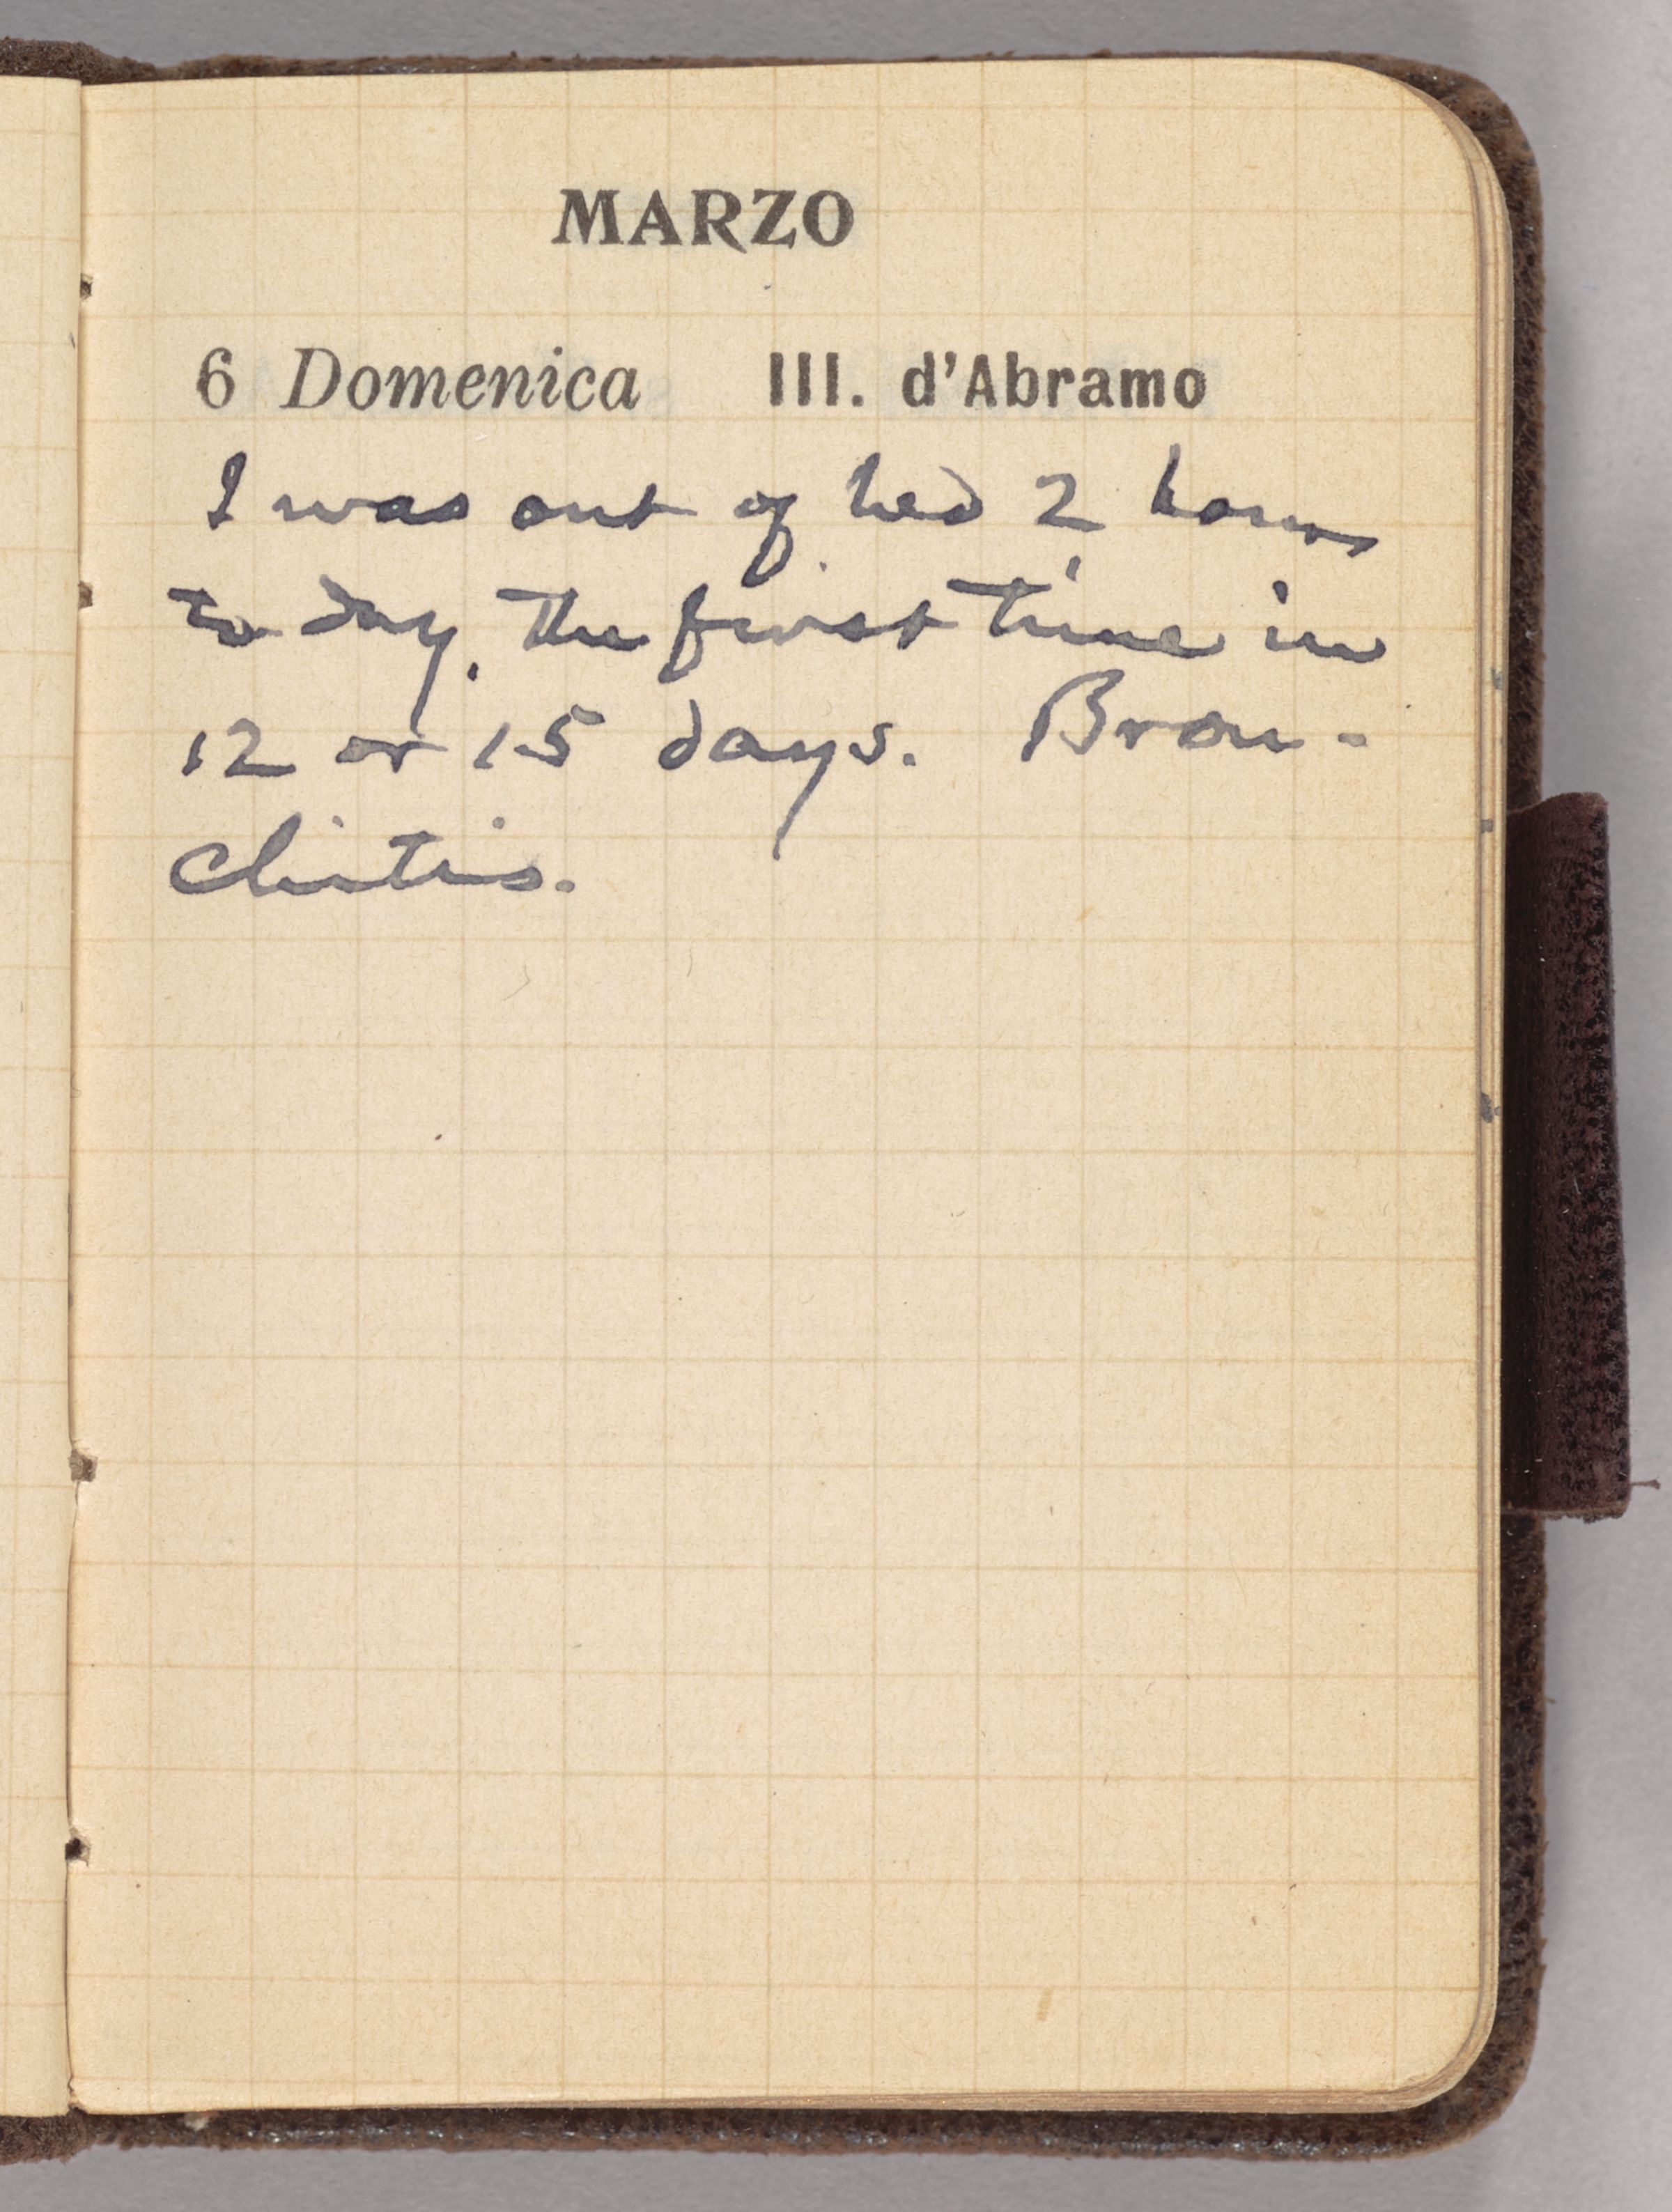 MARZO
6 Domenica III. d'Abramo
I was out of bed 2 hours
to day, the first time in
12 or 15 days. Bron-
chitis.